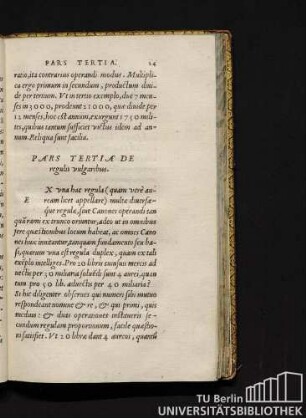 PARS TERTIA. 24
ratio, ita contrarius operandi modus. Multipli
ca ergo primum in secundum, productum divi
de per tertium. Vt in tertio exemplo, duc 7 men
ses in 3000, prodeunt 21000, quæ divide per
12 menses, hoc est annum, exurgunt 1750 mili
tes, quibus tantum sufficiet victus idem ad an
num. Reliqua sunt facilia.
PARS TERTIA DE
regulis vulgaribus.
EX una hac regula (quam verè au-
ream licet appellare) multæ diversæ-
que regulæ, siue Canones operandi tan
quàm ex trunco oriuntur, adeo ut in omnibus
ferè quæstionibus locum habeat, ac omnes Cano
nes huic innitantur, tanquam fundamento seu ba
si, quarum una est regula duplex, quam ex tali
exemplo intelliges. Pro 20 libris cuiusuis mercis ad
vectis per 30 miliaria solvisti sunt 4 aurei, quan
tum pro 50 lib. advectis per 40 miliaria?
Si hic diligenter observes qui numeri sibi mutuo
respondeant nomine & re, & qui primi, qui
medij: & duas operationes institueris se-
cundum regulam proportionum, facilè quæstio-
ni satisfiet. Vt 20 libræ dant 4 aureos, quanti
TU Berlin
UNIVERSITÄTSBIBLIOTHEK